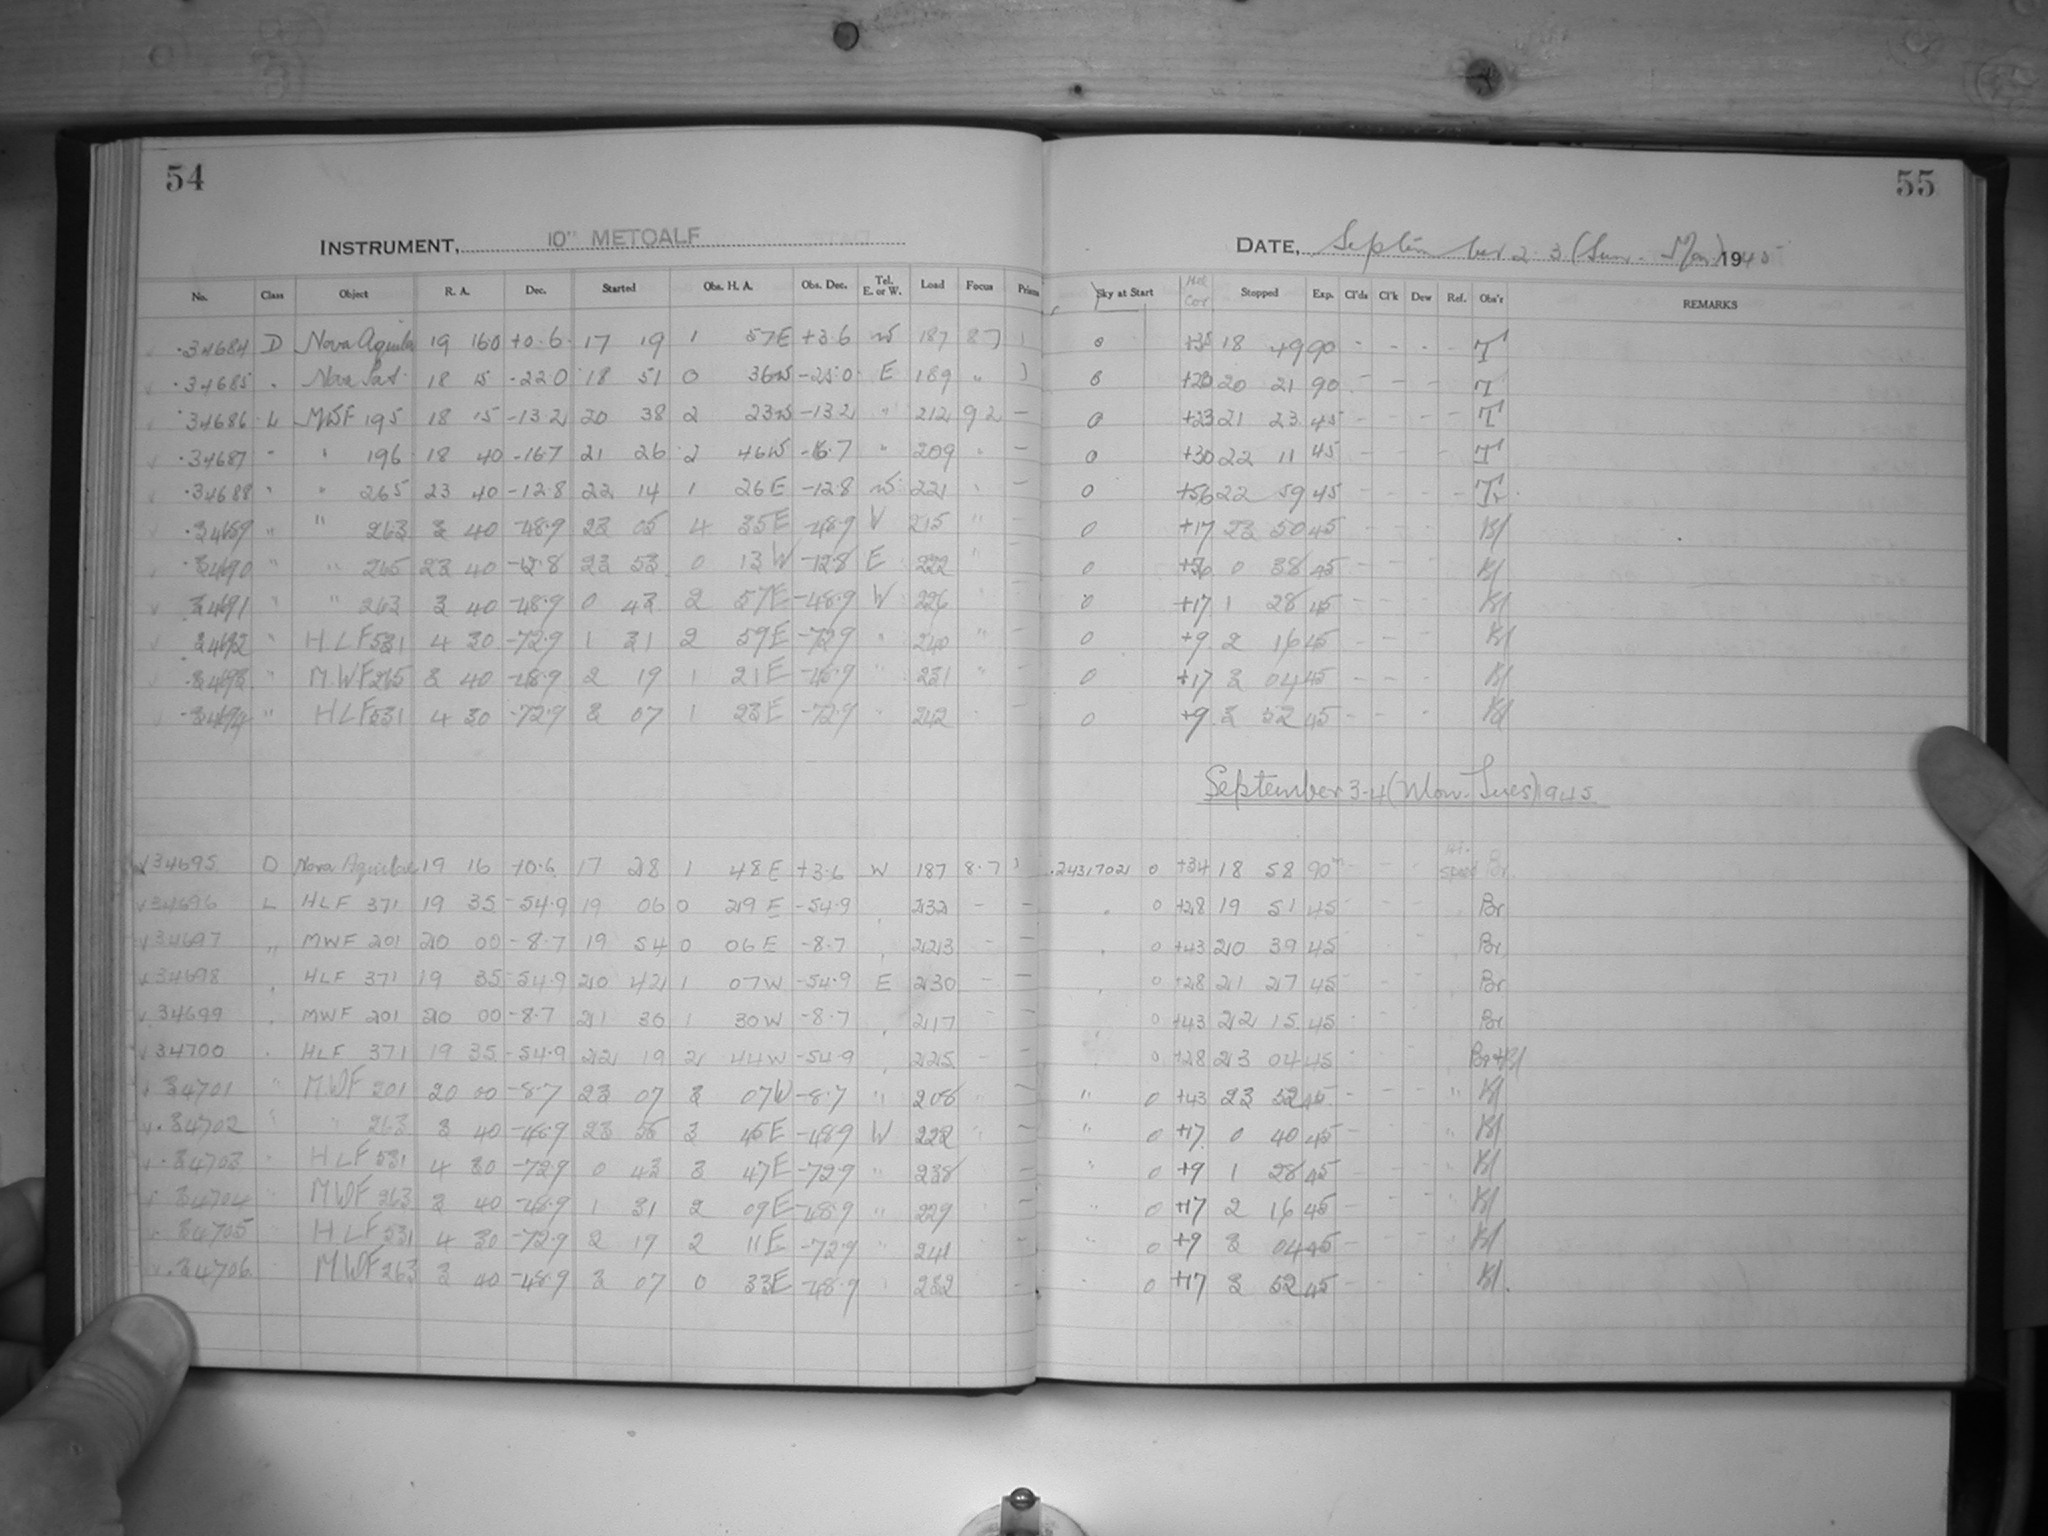 54
55
INSTRUMENT, 10" METCALF
DATE, September 2-3 (Sun.-Mon.) 1945
No. Class Object R. A. Dec. Started Obs. H. A. Obs. Dec. Tel. E. or W. Load Focus Prism Sky at Start Stopped Exp. Cl'ds Cl'k Dew Ref. Obs'r REMARKS
34684 D Nova Aquila 19 16.0 +0.6 17 19 1 57E +3.6 W 187 8.7 0 +35 18 49 90 - - - - T
34685 Nova Sat. 18 15 -22.0 18 51 0 36W -25.0 E 189 " 0 20 21 90 - - - T
34686 L MWF 195 18 15 -13.2 20 38 2 23W -13.2 " 212 9.2 - 0 +23 21 23 45 - - - T
34687 " " 196 18 40 -16.7 21 26 2 46W -16.7 " 209 " - 0 +30 22 11 45 - - - T
34688 " " 265 23 40 -12.8 22 14 1 26E -12.8 W 221 " - 0 +56 22 59 45 - - - - Tr.
34689 " " 263 3 40 -48.9 23 05 4 35E -48.9 W 215 " - 0 +17 23 50 45 - - - Bl
34690 " " 265 23 40 -12.8 23 53 0 13W -12.8 E 222 " - 0 +56 0 38 45 - - - Bl
34691 " " 263 3 40 -48.9 0 43 2 57E -48.9 W 226 " - 0 +17 1 28 45 - - - Bl
34692 " HLF 531 4 30 -72.9 1 31 2 59E -72.9 " 240 " - 0 +9 2 16 45 - - - Bl
34693 " M.WF 265 3 40 -48.9 2 19 1 21E -48.9 " 231 " - 0 +17 3 04 45 - - - Bl
34694 " HLF 531 4 30 -72.9 3 07 1 23E -72.9 " 242 - 0 +9 3 52 45 - - - Bl
September 3-4 (Mon.-Tues) 1945
34695 D Nova Aquilae 19 16 +0.6 17 28 1 48E +3.6 W 187 8.7 .2431702 0 +34 18 58 90 - - - Br.
34696 L HLF 371 19 35 -54.9 19 06 0 29E -54.9 " 232 - - 0 +28 19 51 45 - - Br
34697 " MWF 201 20 00 -8.7 19 54 0 06E -8.7 " 223 - - 0 +43 20 39 45 Br
34698 " HLF 371 19 35 -54.9 20 42 1 07W -54.9 E 230 - - 0 +28 21 27 45 - Br
34699 " MWF 201 20 00 -8.7 21 30 1 30W -8.7 " 217 - - 0 +43 22 15 45 Br
34700 " HLF 371 19 35 -54.9 22 19 2 44W -54.9 " 225 - - 0 +28 23 04 45 Br+Bl
34701 " M.WF 201 20 00 -8.7 23 07 3 07W -8.7 " 208 " - " 0 +43 23 52 45 - - - " Bl
34702 " " 263 3 40 -48.9 23 55 3 45E -48.9 W 222 " - " 0 +17 0 40 45 - - - " Bl
34703 " HLF 531 4 30 -72.9 0 43 3 47E -72.9 " 238 - " 0 +9 1 28 45 - - - " Bl
34704 M.WF 263 3 40 -48.9 1 31 2 09E -48.9 " 229 - " 0 +17 2 16 45 - - - " Bl
34705 HLF 531 4 30 -72.9 2 19 2 11E -72.9 " 241 - " 0 +9 3 04 45 - - - " Bl
34706 M.WF 263 3 40 -48.9 3 07 0 33E -48.9 " 232 - " 0 +17 3 52 45 - - - Bl.